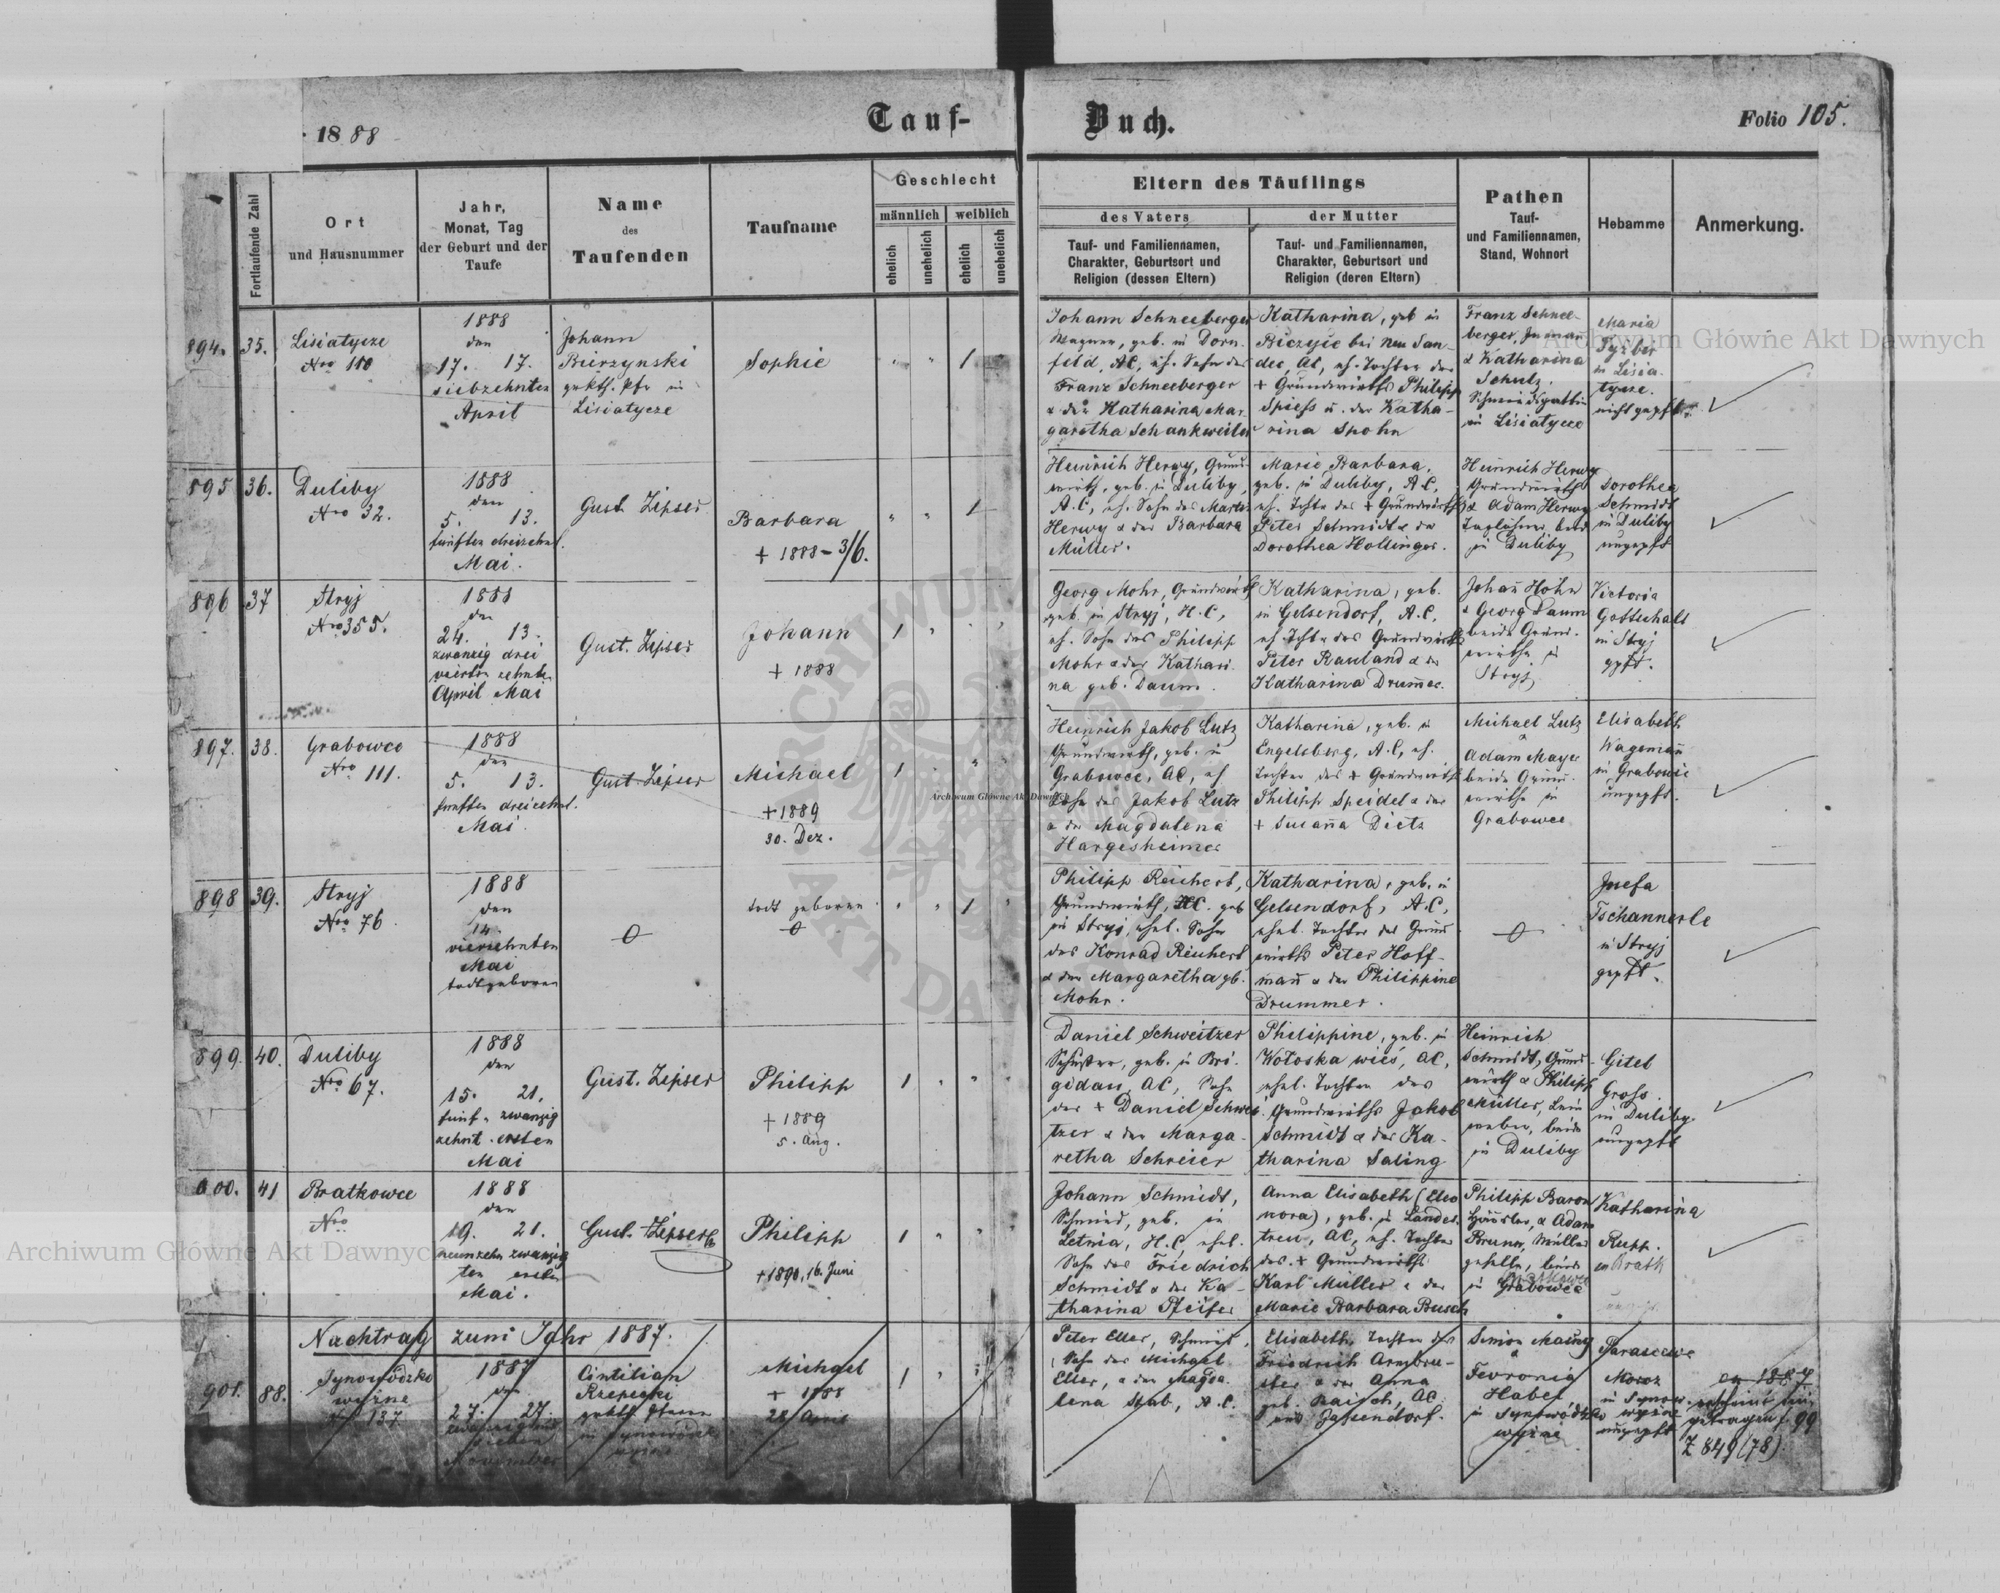 1888
Tauf-
Buch.
Folio 105.
Fortlaufende Zahl
Ort
und Hausnummer
Jahr,
Monat, Tag
der Geburt und der
Taufe
Name
des
Taufenden
Taufname
Geschlecht
männlich
weiblich
ehelich
unehelich
ehelich
unehelich
Eltern des Täuflings
des Vaters
der Mutter
Tauf- und Familiennamen,
Charakter, Geburtsort und
Religion (dessen Eltern)
Tauf- und Familiennamen,
Charakter, Geburtsort und
Religion (deren Eltern)
Pathen
Tauf-
und Familiennamen,
Stand, Wohnort
Hebamme
Anmerkung.
894.
35.
Lisiatycze
Nro 110
1888
den
17. 17.
siebzehnten
April
Johann
Bierzynski
gr. kth. Pfr in
Lisiatycze
Sophie
1
Johann Schneeberger
Wagner, geb. in Dorn-
feld, AC, eh. Sohn des
Franz Schneeberger
& der Katharina Mar-
garetha Schankweiler
Katharina, geb in
Biczyce bei Neu San-
dec, AC, eh. Tochter des
+ Grundwirths Philipp
Spiess u. der Katha-
rina Spohn
Franz Schnee-
berger,
& Katharina
Schutz,
in Lisiatycze
Maria
in Lisia-
tycze.
nicht gepft.
895
36.
Duliby
Nro 32.
1888
den
5. 13.
fünften dreizehnt.
Mai.
Gust. Zipser
Barbara
+ 1888 - 3/6.
1
Heinrich Herwy, Grund-
wirth, geb. in Duliby,
A.C, eh. Sohn des Martin
Herwy & der Barbara
Müller.
Marie Barbara,
geb. in Duliby, A.C,
eh. Tocht. des + Grundwirths
Peter Schmidt & der
Dorothea Hollinger.
Heinrich Herwy
Grundwirth
& Adam Herwy
Taglöhner, beide
in Duliby
Dorothea
Schmidt
in Duliby
ungepft
896
37
Stryj
Nro 355.
1888
den
24. 13.
zwanzig drei
vierten zehnten
April Mai
Gust. Zipser
Johann
+ 1888
1
Georg Mohr, Grundwirth
geb. in Stryj, H.C,
eh. Sohn des Philipp
Mohr & der Kathari-
na geb. Daum.
Katharina, geb.
in Gelsendorf, A.C,
eh Tocht. des Grundwirths
Peter Rauland & der
Katharina Drummer.
Johann Hohn
& Georg Daum
beide Grund-
wirthe in
Stryj
Victoria
Gottschalk
in Stryj
gpft.
897.
38.
Grabowce
Nro 111.
1888
den
5. 13.
fünften dreizehnt.
Mai
Gust. Zipser
Michael
+ 1889
30. Dez.
1
Heinrich Jakob Lutz
Grundwirth, geb. in
Grabowce, AC, eh
Sohn des Jakob Lutz
& der Magdalena
Hargesheimer
Katharina, geb. in
Engelsberg, A.C, eh.
Tochter des + Grundwirths
Philipp Speidel & der
+ Susanna Dietz
Michael Lutz
&
Adam Mayer
beide Grund-
wirthe in
Grabowce
Elisabeth
Wagemann
in Grabowce
ungepft.
898
39.
Stryj
Nro 76.
1888
den
14.
vierzehnten
Mai
todtgeboren
todt geboren
1
Philipp Reichert,
Grundwirth, HC. geb
in Stryj, ehel. Sohn
des Konrad Reichert
& der Margaretha gb.
Mohr.
Katharina, geb. in
Gelsendorf, A.C,
ehel. Tochter des Grund-
wirths Peter Hoff-
mann & der Philippine
Drummer.
Josefa
Tschannerle
in Stryj
gepft.
899.
40.
Duliby
Nro 67.
1888
den
15. 21.
fünf- zwanzig
zehnt. ersten
Mai
Gust. Zipser
Philipp
+ 1889
5. Aug.
1
Daniel Schweitzer
Schuster, geb. in Bri-
gidau, AC, Sohn
des + Daniel Schwei-
tzer & der Marga-
retha Schreier
Philippine, geb. in
Wołoska wieś, AC,
ehel. Tochter des
Grundwirths Jakob
Schmidt & der Ka-
tharina Saling
Heinrich
Schmidt, Grund-
wirth & Philipp
Müller, Lein-
weber, beide
in Duliby
Gitel
Gross.
in Duliby.
ungepft
900.
41
Bratkowce
Nro
1888
den
19. 21.
neunzehn zwanzig
ten ersten
Mai.
Gust. Zipser
Philipp
+ 1890, 16. Juni
1
Johann Schmidt,
Schmied, geb. in
Letnia, H.C, ehel.
Sohn des Friedrich
Schmidt & der Ka-
tharina Pfeifer
Anna Elisabeth (Eleo-
nora), geb. in Landes-
treu, AC, eh. Tochter
des + Grundwirths
Karl Müller & der
Marie Barbara Busch
Philipp Baron
& Adam
Brunn, Müller-
geselle, beide
in Grabowce
Katharina
Rupp.
in Bratk
Nachtrag zum Jahr 1887.
901.
88.
Synowódzko
wyżne
Nro 137
1887
den
27. 27.
zwanzig und
sieben
November
Cintilian
Rzepecki
gr. kth. Pfarrer
in Synowódzk
wyżne
Michael
+ 1888
28 April
1
Peter Eller, Schmied,
Sohn des Michael
Eller, & der Magda-
lena Stab, A.C.
Elisabeth, Tochter des
Friedrich Armbru-
ster & der Anna
geb. Raisch, AC
aus Gassendorf.
Simon Mainz
&
Fevronia
Habel
in Synowódzko
wyżne
Parascewe
Moroz
in Synow.
wyżne
ungepft
ex 1887
getragen f. 99
Z 849 (78)
Archiwum Główne Akt Dawnych
Archiwum Główne Akt Dawnych
Archiwum Główne Akt Dawnych
ARCHIWUM GŁÓWNE
AKT DAWNYCH